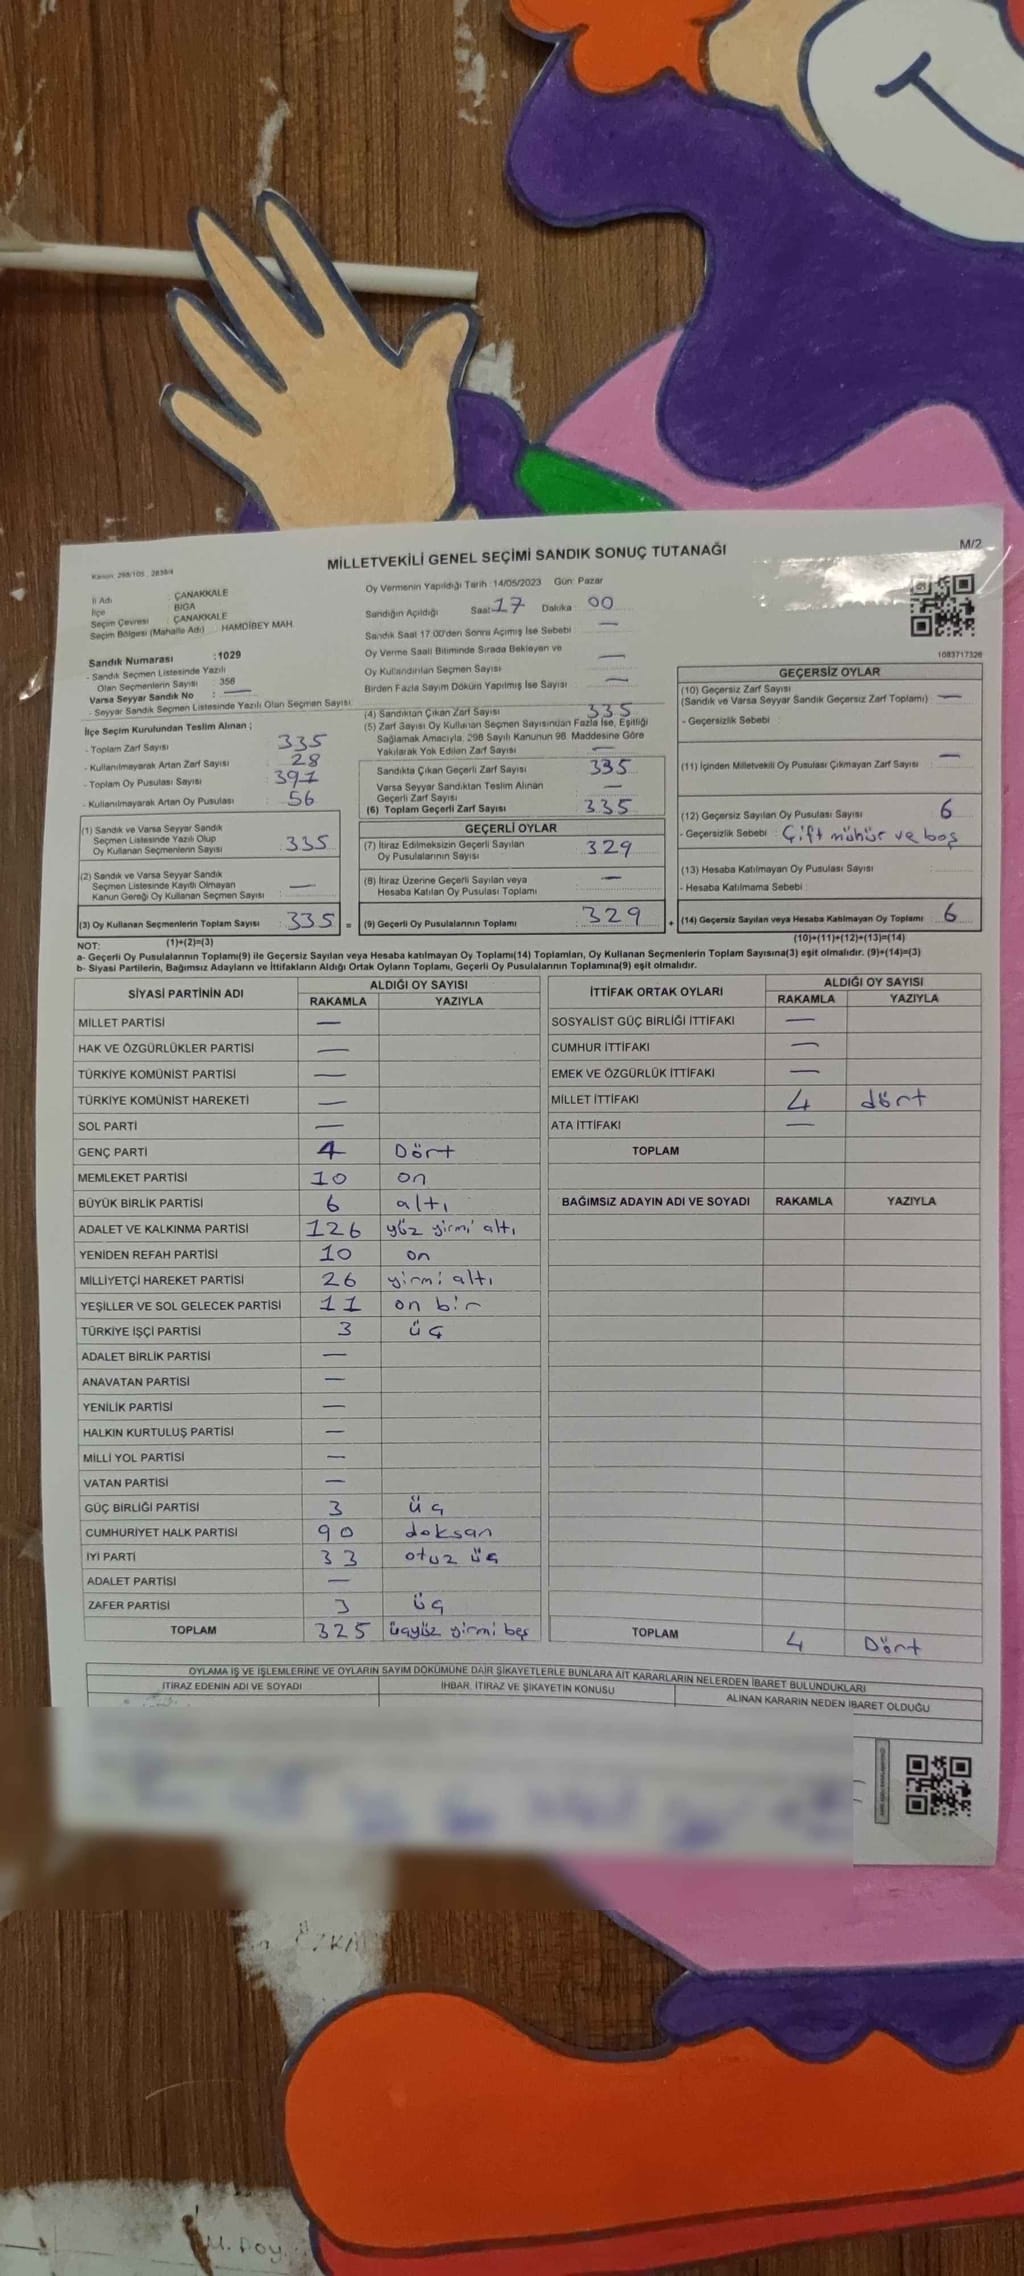 MİLLETVEKİLİ GENEL SEÇİMİ SANDIK SONUÇ TUTANAĞI
M/2
Kanun: 298/105, 2839/4
İl Adı : ÇANAKKALE
İlçe : BİGA
Seçim Çevresi : ÇANAKKALE
Seçim Bölgesi (Mahalle Adı) : HAMDİBEY MAH.
Sandık Numarası : 1029
- Sandık Seçmen Listesinde Yazılı
Olan Seçmenlerin Sayısı : 356
Varsa Seyyar Sandık No : —
- Seyyar Sandık Seçmen Listesinde Yazılı Olan Seçmen Sayısı:
İlçe Seçim Kurulundan Teslim Alınan ;
- Toplam Zarf Sayısı 335
- Kullanılmayarak Artan Zarf Sayısı : 28
- Toplam Oy Pusulası Sayısı : 391
- Kullanılmayarak Artan Oy Pusulası : 56
(1) Sandık ve Varsa Seyyar Sandık
Seçmen Listesinde Yazılı Olup
Oy Kullanan Seçmenlerin Sayısı : 335
(2) Sandık ve Varsa Seyyar Sandık
Seçmen Listesinde Kayıtlı Olmayan
Kanun Gereği Oy Kullanan Seçmen Sayısı : —
(3) Oy Kullanan Seçmenlerin Toplam Sayısı : 335 =
(1)+(2)=(3)
Oy Vermenin Yapıldığı Tarih : 14/05/2023 Gün: Pazar
Sandığın Açıldığı Saat 17 Dakika 00
Sandık Saat 17:00'den Sonra Açımış İse Sebebi —
Oy Verme Saati Bitiminde Sırada Bekleyen ve
Oy Kullandırılan Seçmen Sayısı —
Birden Fazla Sayım Döküm Yapılmış İse Sayısı —
(4) Sandıktan Çıkan Zarf Sayısı 335
(5) Zarf Sayısı Oy Kullanan Seçmen Sayısından Fazla İse, Eşitliği
Sağlamak Amacıyla, 298 Sayılı Kanunun 98. Maddesine Göre
Yakılarak Yok Edilen Zarf Sayısı —
Sandıkta Çıkan Geçerli Zarf Sayısı : 335
Varsa Seyyar Sandıktan Teslim Alınan
Geçerli Zarf Sayısı —
(6) Toplam Geçerli Zarf Sayısı : 335
GEÇERLİ OYLAR
(7) İtiraz Edilmeksizin Geçerli Sayılan
Oy Pusulalarının Sayısı : 329
(8) İtiraz Üzerine Geçerli Sayılan veya
Hesaba Katılan Oy Pusulası Toplamı —
(9) Geçerli Oy Pusulalarının Toplamı : 329 +
1083717326
GEÇERSİZ OYLAR
(10) Geçersiz Zarf Sayısı
(Sandık ve Varsa Seyyar Sandık Geçersiz Zarf Toplamı) : —
- Geçersizlik Sebebi :
(11) İçinden Milletvekili Oy Pusulası Çıkmayan Zarf Sayısı : —
(12) Geçersiz Sayılan Oy Pusulası Sayısı : 6
- Geçersizlik Sebebi : Çift mühür ve boş
(13) Hesaba Katılmayan Oy Pusulası Sayısı :
- Hesaba Katılmama Sebebi :
(14) Geçersiz Sayılan veya Hesaba Katılmayan Oy Toplamı : 6
(10)+(11)+(12)+(13)=(14)
NOT:
a- Geçerli Oy Pusulalarının Toplamı(9) ile Geçersiz Sayılan veya Hesaba katılmayan Oy Toplamı(14) Toplamları, Oy Kullanan Seçmenlerin Toplam Sayısına(3) eşit olmalıdır. (9)+(14)=(3)
b- Siyasi Partilerin, Bağımsız Adayların ve İttifakların Aldığı Ortak Oyların Toplamı, Geçerli Oy Pusulalarının Toplamına(9) eşit olmalıdır.
SİYASİ PARTİNİN ADI ALDIĞI OY SAYISI
RAKAMLA YAZIYLA
MİLLET PARTİSİ —
HAK VE ÖZGÜRLÜKLER PARTİSİ —
TÜRKİYE KOMÜNİST PARTİSİ —
TÜRKİYE KOMÜNİST HAREKETİ —
SOL PARTİ —
GENÇ PARTİ 4 Dört
MEMLEKET PARTİSİ 10 on
BÜYÜK BİRLİK PARTİSİ 6 altı
ADALET VE KALKINMA PARTİSİ 126 yüz yirmi altı
YENİDEN REFAH PARTİSİ 10 on
MİLLİYETÇİ HAREKET PARTİSİ 26 yirmi altı
YEŞİLLER VE SOL GELECEK PARTİSİ 11 on bir
TÜRKİYE İŞÇİ PARTİSİ 3 üç
ADALET BİRLİK PARTİSİ —
ANAVATAN PARTİSİ —
YENİLİK PARTİSİ —
HALKIN KURTULUŞ PARTİSİ —
MİLLİ YOL PARTİSİ —
VATAN PARTİSİ —
GÜÇ BİRLİĞİ PARTİSİ 3 üç
CUMHURİYET HALK PARTİSİ 90 doksan
İYİ PARTİ 33 otuz üç
ADALET PARTİSİ —
ZAFER PARTİSİ 3 üç
TOPLAM 325 üçyüz yirmi beş
İTTİFAK ORTAK OYLARI ALDIĞI OY SAYISI
RAKAMLA YAZIYLA
SOSYALİST GÜÇ BİRLİĞİ İTTİFAKI —
CUMHUR İTTİFAKI —
EMEK VE ÖZGÜRLÜK İTTİFAKI —
MİLLET İTTİFAKI 4 dört
ATA İTTİFAKI —
TOPLAM
BAĞIMSIZ ADAYIN ADI VE SOYADI RAKAMLA YAZIYLA
TOPLAM 4 Dört
OYLAMA İŞ VE İŞLEMLERİNE VE OYLARIN SAYIM DÖKÜMÜNE DAİR ŞİKAYETLERLE BUNLARA AİT KARARLARIN NELERDEN İBARET BULUNDUKLARI
İTİRAZ EDENİN ADI VE SOYADI İHBAR, İTİRAZ VE ŞİKAYETİN KONUSU ALINAN KARARIN NEDEN İBARET OLDUĞU